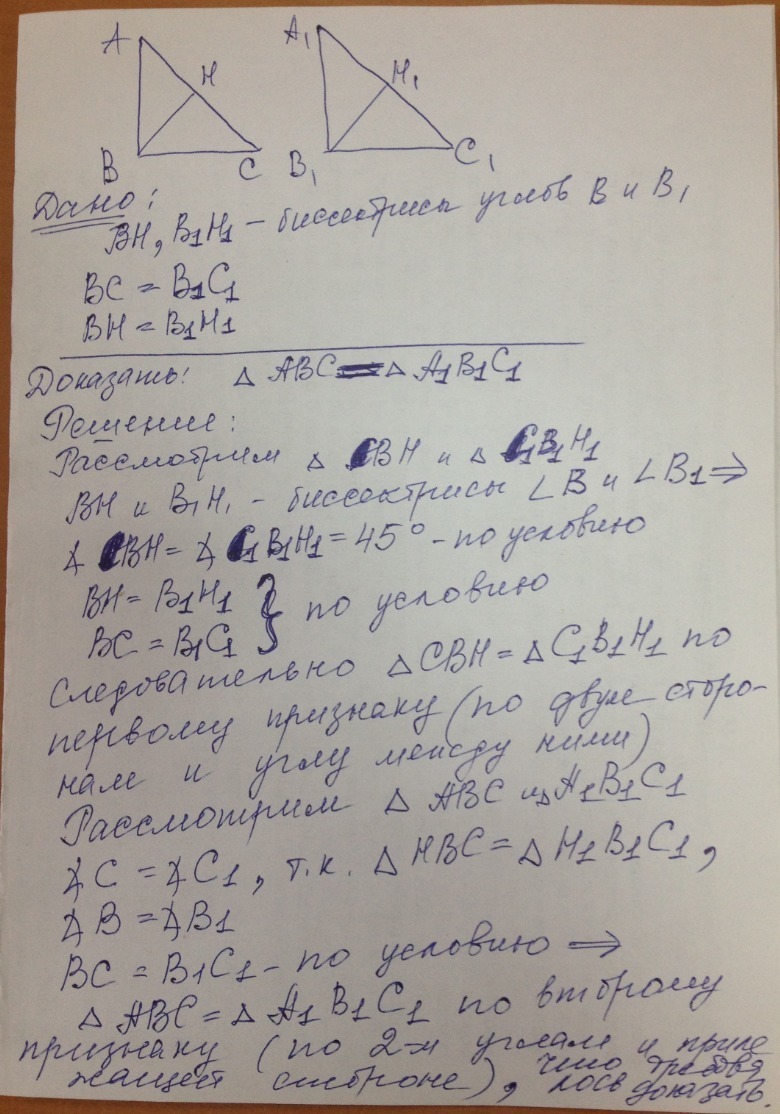 A H B C A₁ H₁ B₁ C₁
Дано:
BH, B₁H₁ - биссектрисы углов B и B₁
BC = B₁C₁
BH = B₁H₁
Доказать: △ ABC = △ A₁B₁C₁
Решение:
Рассмотрим △ CBH и △ C₁B₁H₁
BH и B₁H₁ - биссектрисы ∠B и ∠B₁ ⇒
∡ CBH = ∡ C₁B₁H₁ = 45° - по условию
BH = B₁H₁ } по условию
BC = B₁C₁
Следовательно △CBH = △C₁B₁H₁ по
первому признаку (по двум сторо-
нам и углу между ними)
Рассмотрим △ ABC и △ A₁B₁C₁
∡C = ∡C₁, т.к. △ HBC = △ H₁B₁C₁,
∡B = ∡B₁
BC = B₁C₁ - по условию ⇒
△ ABC = △ A₁B₁C₁ по второму
признаку (по 2-м углам и приле
жащей стороне), что требова
лось доказать.